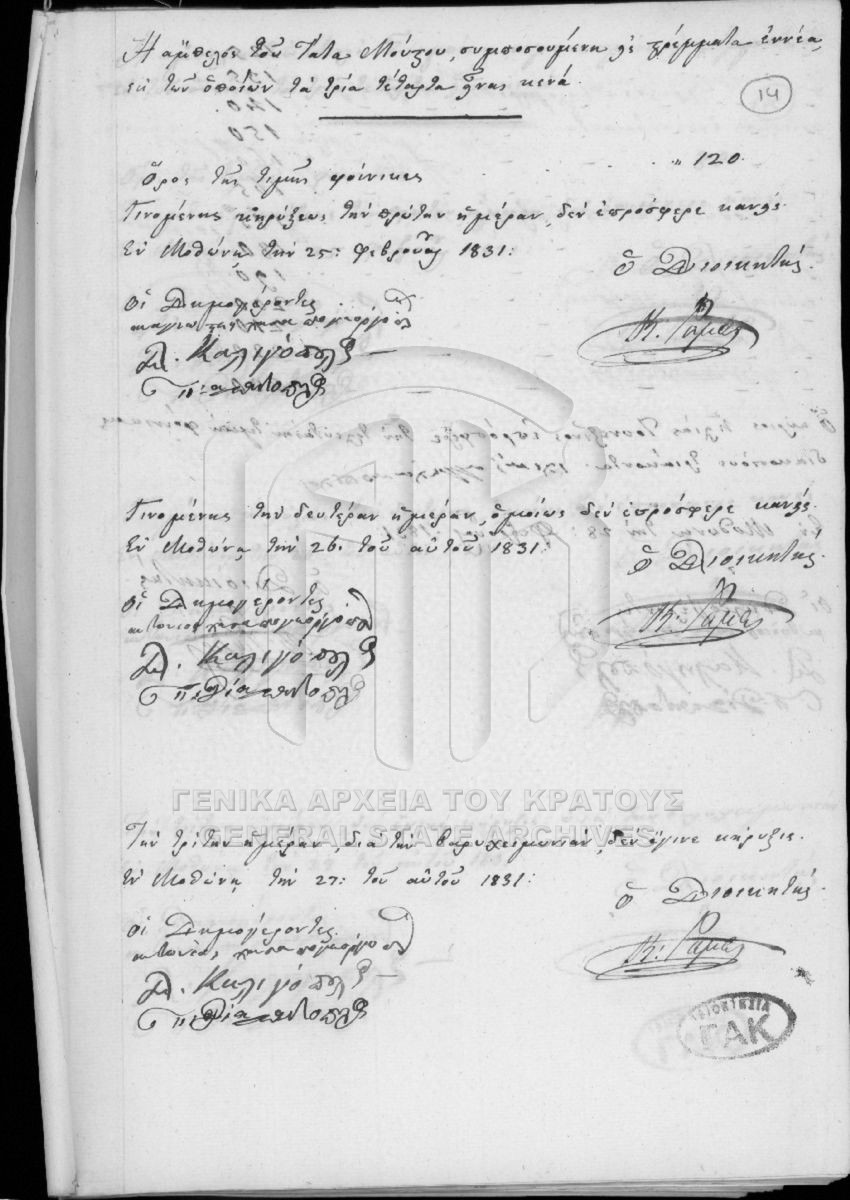 Ἡ ἄμπελος τοῦ Τάτα Μούχου, συμποσουμένη εἰς στρέμματα ἐννέα,
ἐκ τῶν ὁποίων τὰ τρία τέταρτα εἶναι κενά.
14
Ὅρος τῆς τιμῆς φοίνικες " 120.
Γινομένης κηρύξεως τὴν πρώτην ἡμέραν, δὲν ἐπρόσφερε κανείς.
Ἐν Μοθώνῃ τὴν 25: Φεβρουαρ 1831:
ὁ Διοικητής.
Οἱ Δημογέροντες
Κ. Ράμας
Δ. Καλιγόπουλος
Γινομένης τὴν δευτέραν ἡμέραν, ὁμοίως δὲν ἐπρόσφερε κανείς.
Ἐν Μοθώνῃ τὴν 26. τοῦ αὐτοῦ 1831:
ὁ Διοικητής.
Οἱ Δημογέροντες
Κ. Ράμας
Δ. Καλιγόπουλος
ΓΕΝΙΚΑ ΑΡΧΕΙΑ ΤΟΥ ΚΡΑΤΟΥΣ
GENERAL STATE ARCHIVES
Τὴν τρίτην ἡμέραν, διὰ τὴν βαρυχειμωνιάν, δὲν ἔγινε κήρυξις.
Ἐν Μοθώνῃ τὴν 27: τοῦ αὐτοῦ 1831:
ὁ Διοικητής.
Οἱ Δημογέροντες
Κ. Ράμας
Δ. Καλιγόπουλος
ΓΑΚ